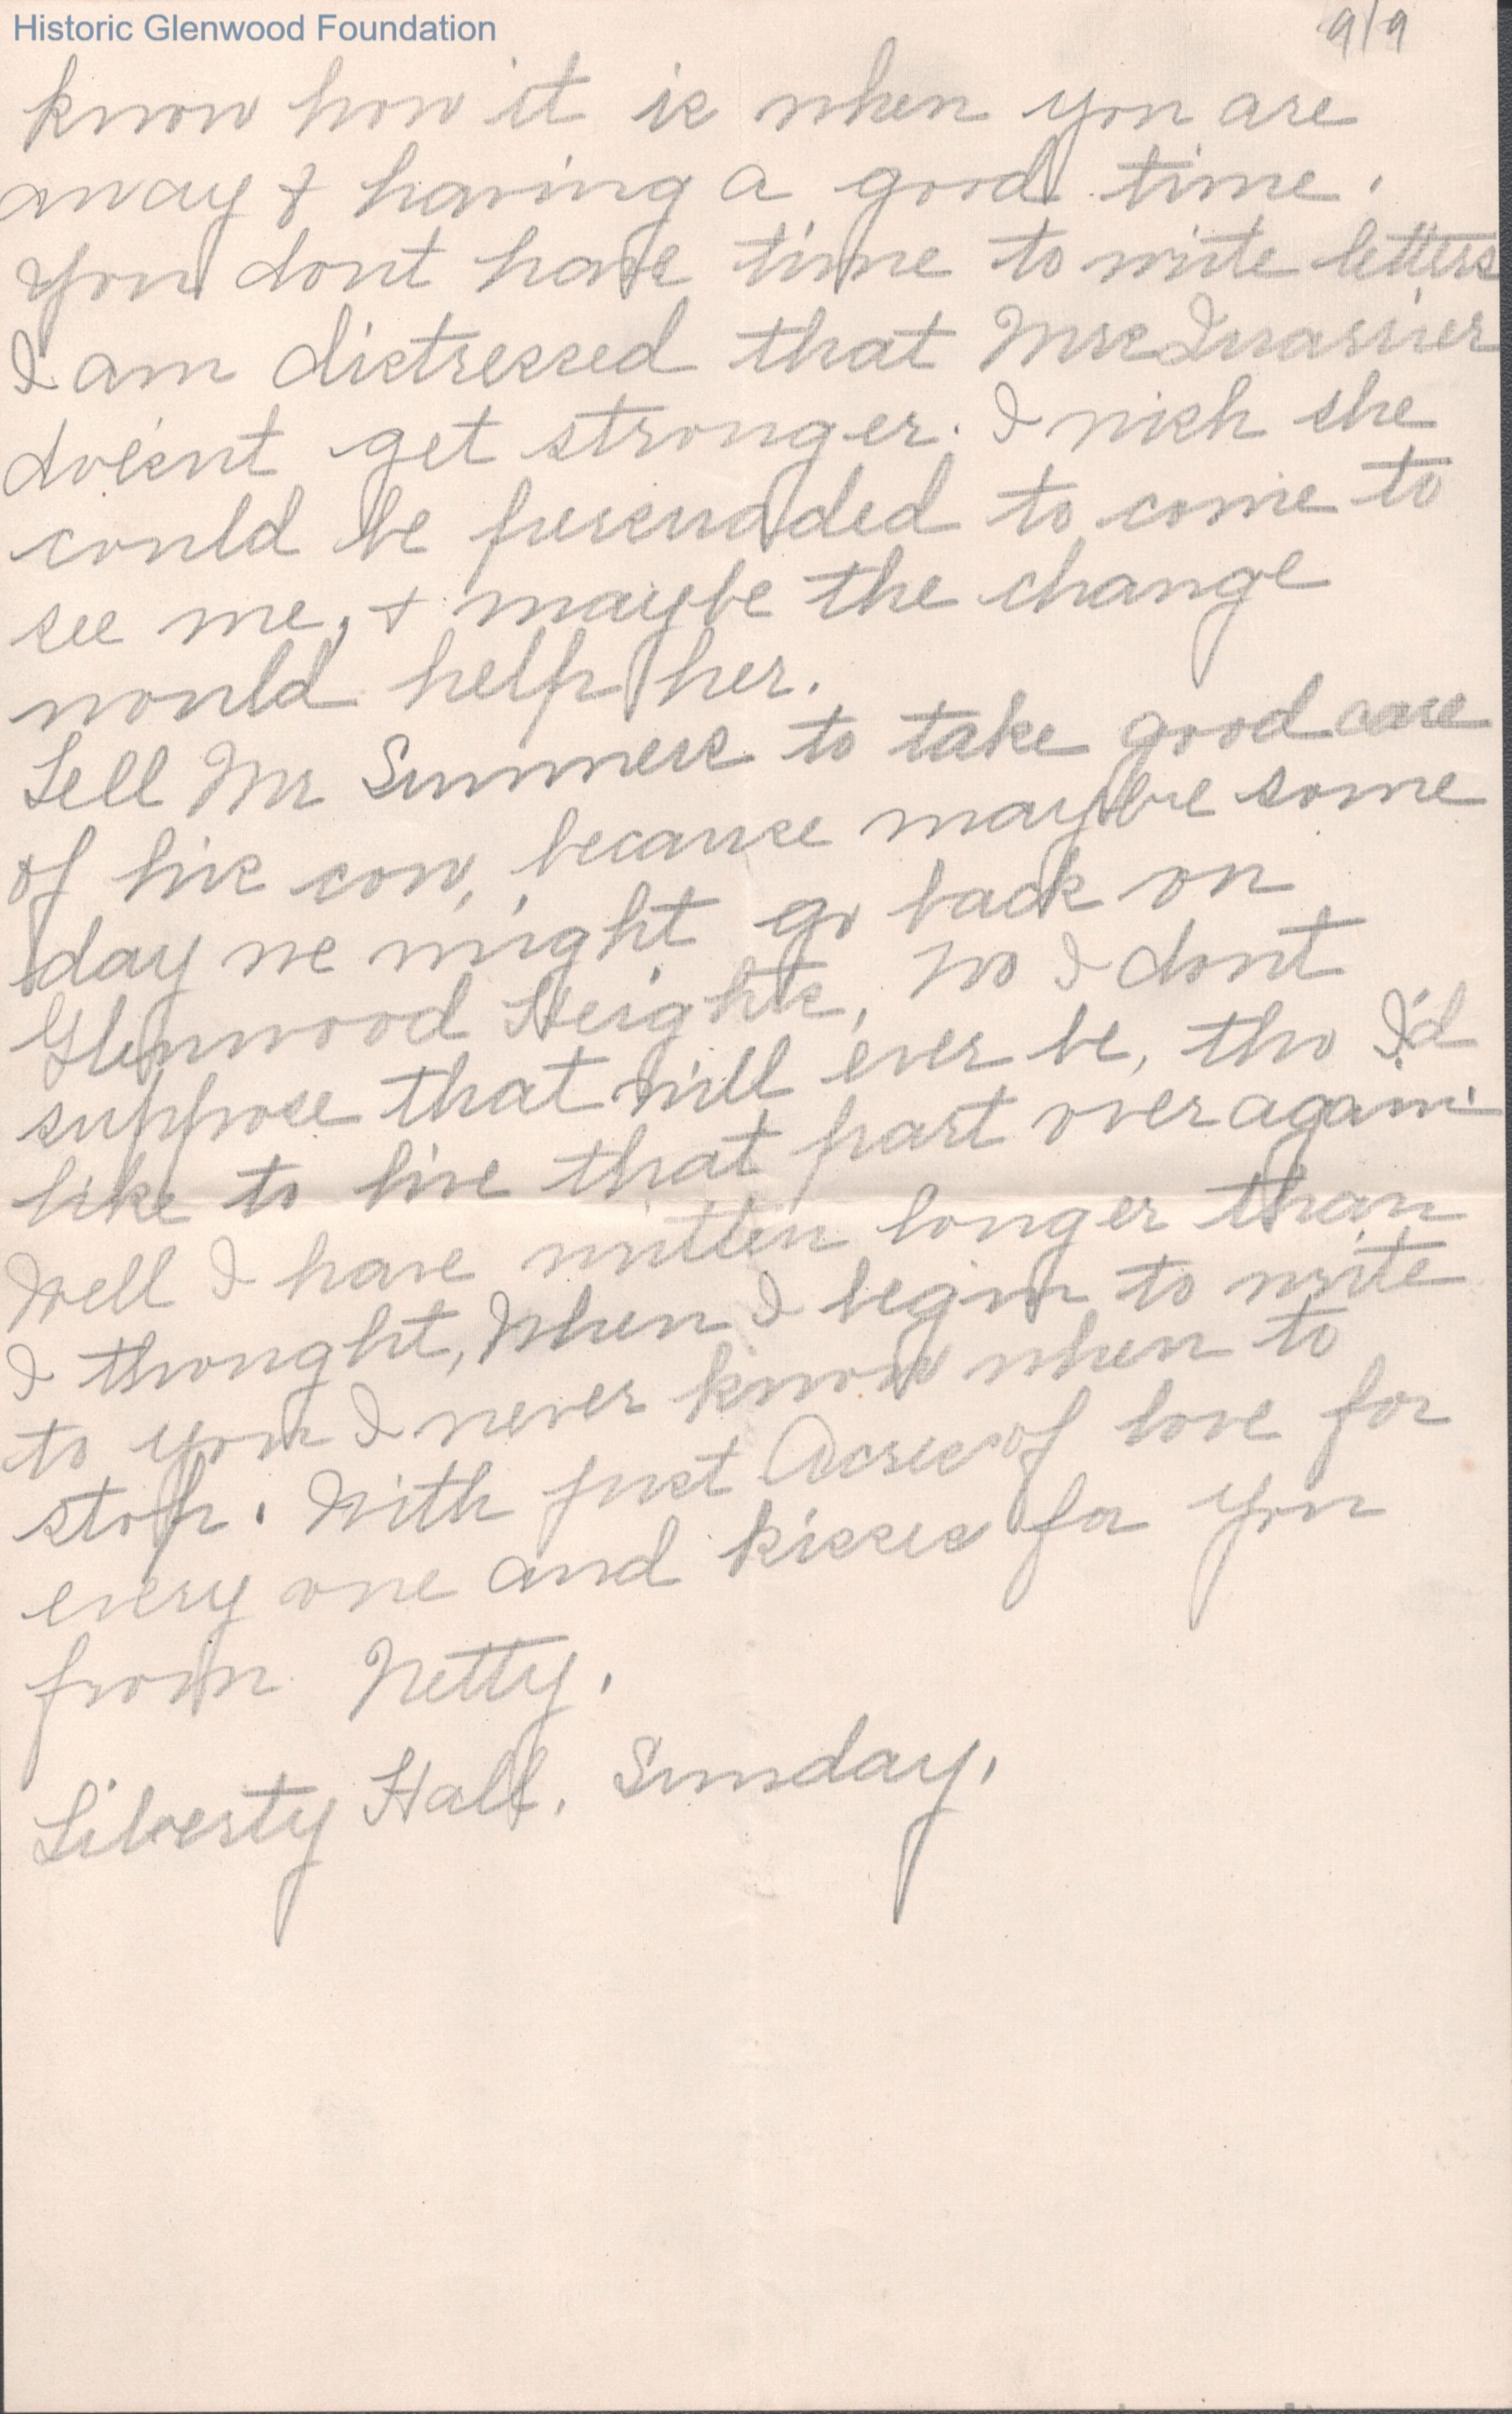 Historic Glenwood Foundation
9/9
know how it is when you are
away & having a good time.
You dont have time to write letters
I am distressed that Mrs Quarrier
doesnt get stronger. I wish she
could be persuaded to come to
see me, & maybe the change
would help her.
Tell Mr Summers to take good care
of his cow, because maybe some
day we might go back on
Glenwood Heights, no I dont
suppose that will ever be, tho I'd
like to live that part over again.
Well I have written longer than
I thought, When I begin to write
to you I never know when to
stop. With just Acres of love for
every one and kisses for you
from Netty.
Liberty Hall. Sunday.